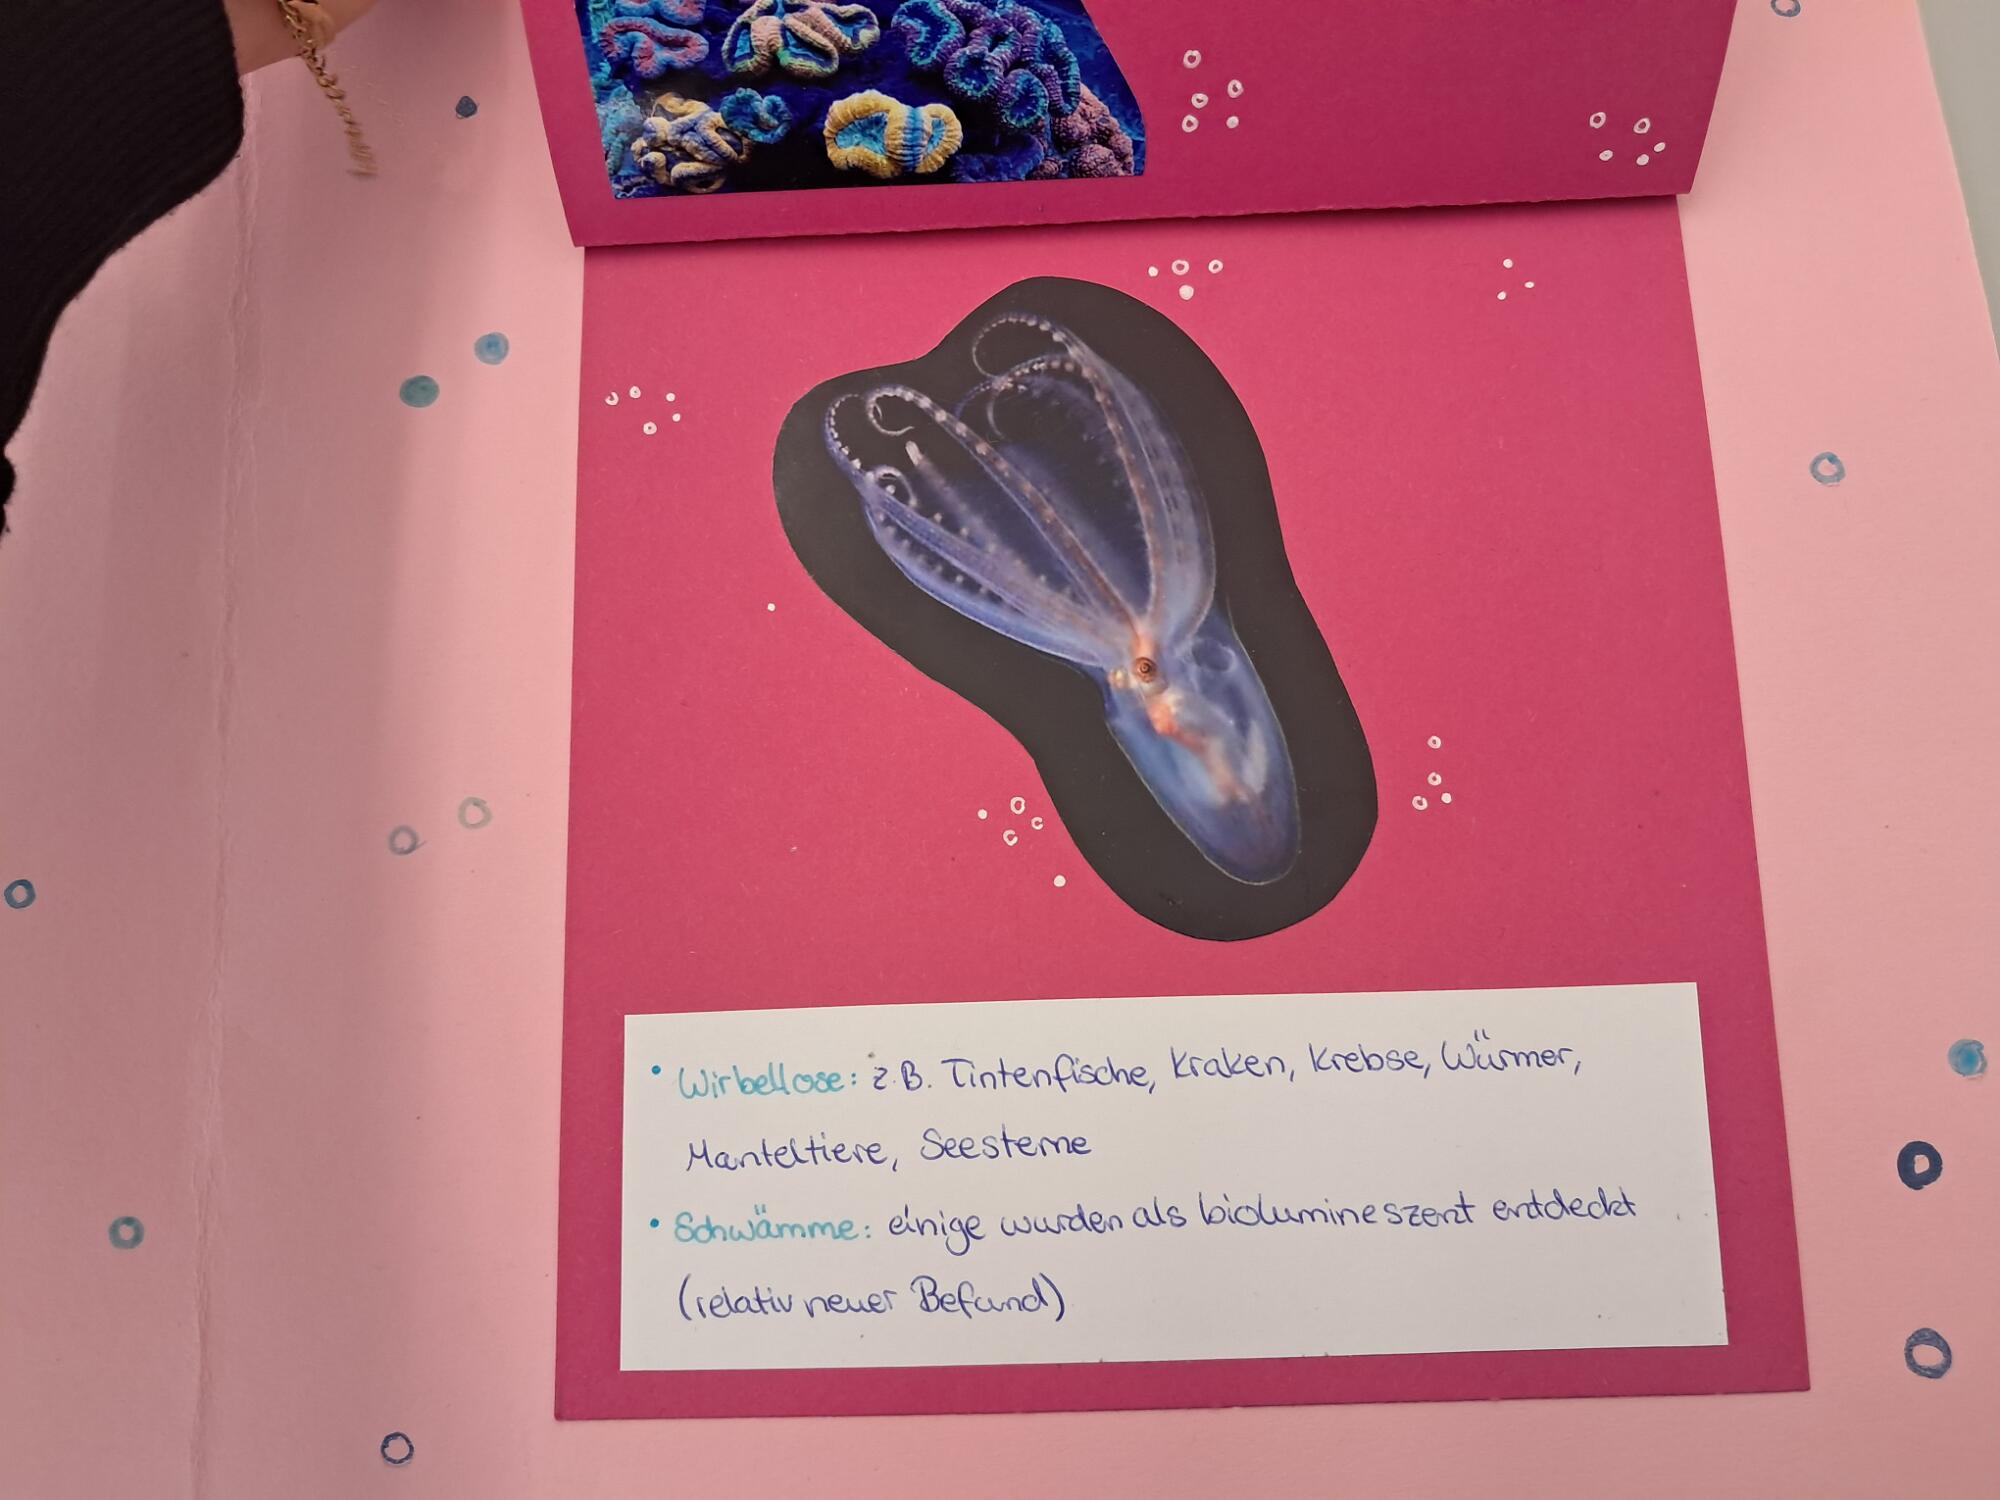 • Wirbellose: z.B. Tintenfische, Kraken, Krebse, Würmer,
Manteltiere, Seesterne
• Schwämme: einige wurden als biolumineszent entdeckt
(relativ neuer Befund)